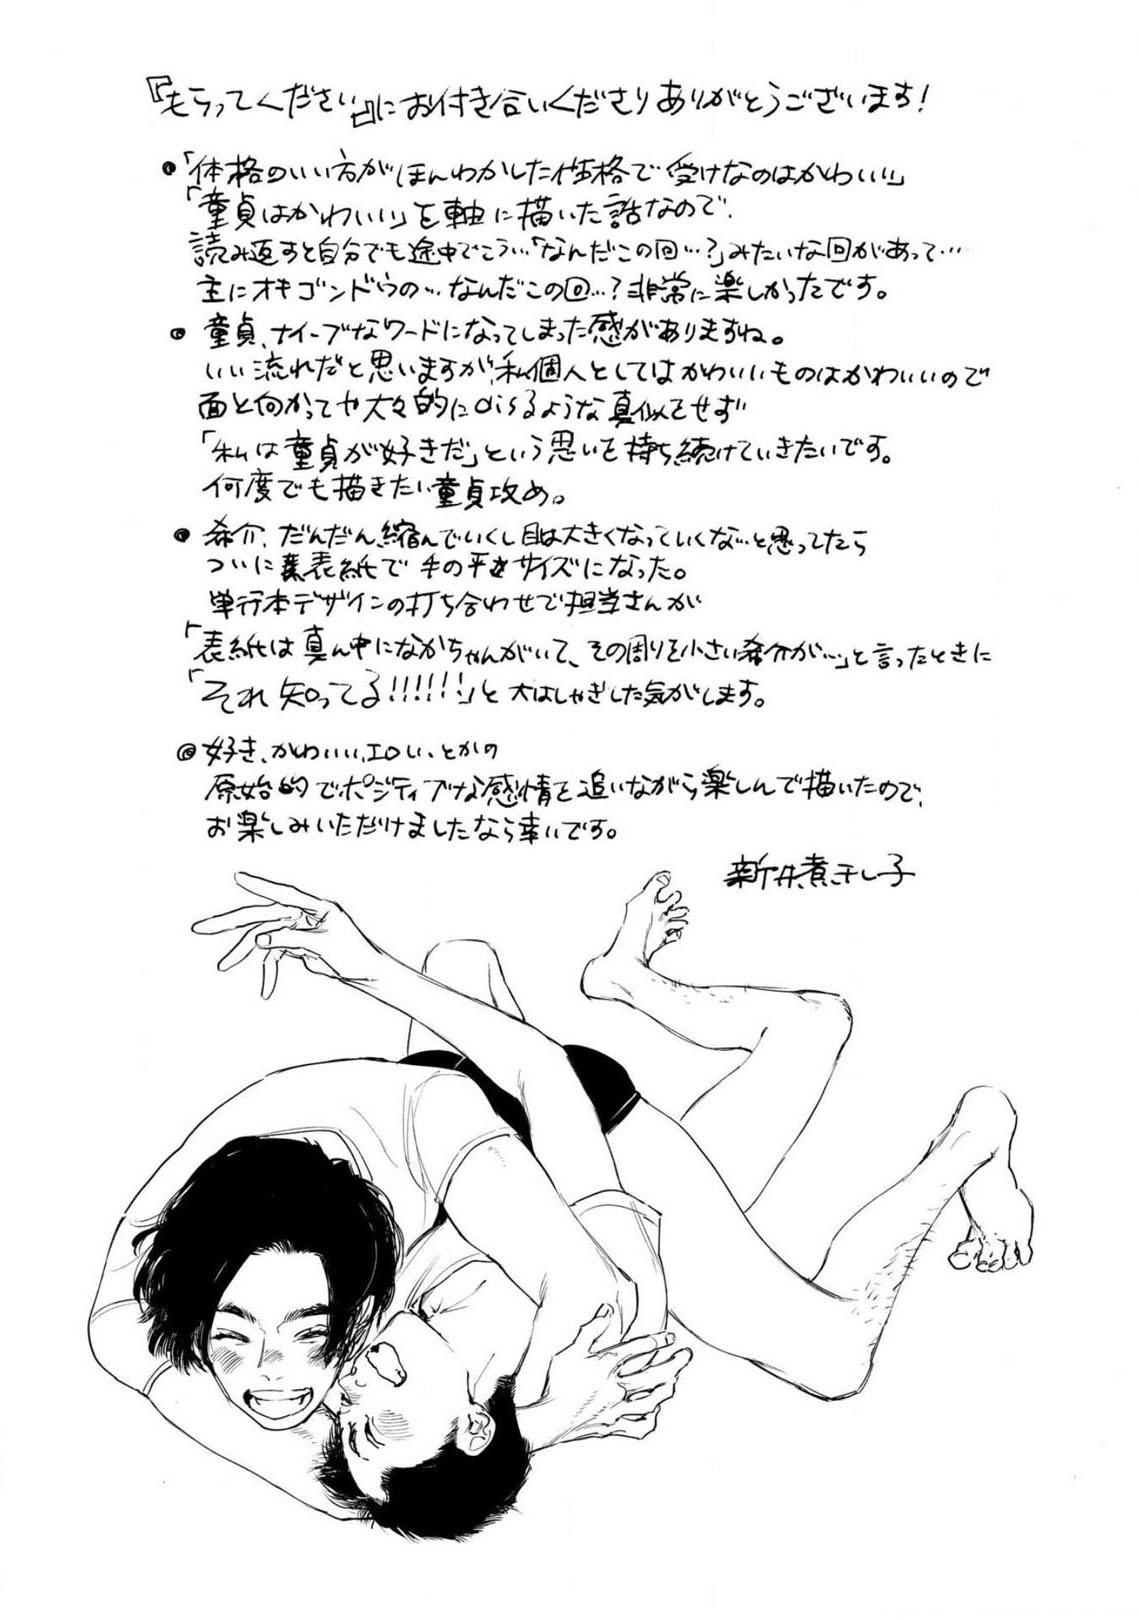 『もらってください』にお付き合いくださりありがとうございます!
●「体格のいい方がほんわかした性格で受けなのはかわいい」
「童貞はかわいい」を軸に描いた話なので、
読み返すと自分でも途中でこう…「なんだこの回…?」みたいな回があって…
主にオキゴンドウの…なんだこの回…?非常に楽しかったです。
●童貞、ナイーブなワードになってしまった感がありますね。
いい流れだと思いますが、私個人としてはかわいいものはかわいいので
面と向かってや大々的にdisるような真似をせず
「私は童貞が好きだ」という思いを持ち続けていきたいです。
何度でも描きたい童貞攻め。
●希介、だんだん縮んでいくし目は大きくなっていくな…と思ってたら
ついに裏表紙で手の平サイズになった。
単行本デザインの打ち合わせで担当さんが
「表紙は真ん中になかちゃんがいて、その周りを小さい希介が…」と言ったときに
「それ知ってる!!!!!!」と大はしゃぎした気がします。
●好き、かわいい、エロい、とかの
原始的でポジティブな感情を追いながら楽しんで描いたので、
お楽しみいただけましたなら幸いです。
新井煮干し子